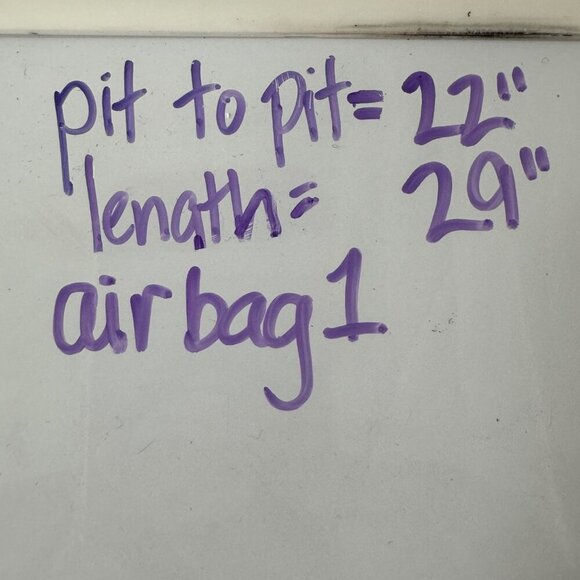 pit to pit= 22"
length= 29"
airbag1